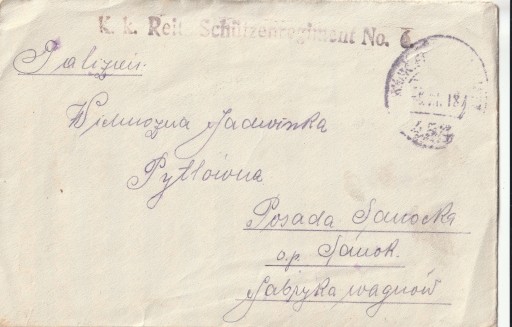 K. k. Reit. Schützenregiment No. 6.
Galizien.
Wielmożna Jadwinka
Pytlówna
Posada Sanocka
o.p. Sanok.
Fabryka wagnów